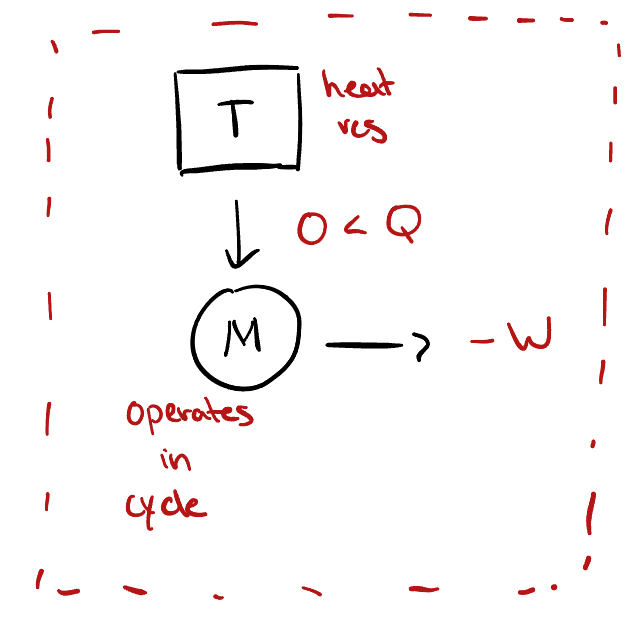 T
heat
res
0 < Q
M
- W
operates
in
cycle